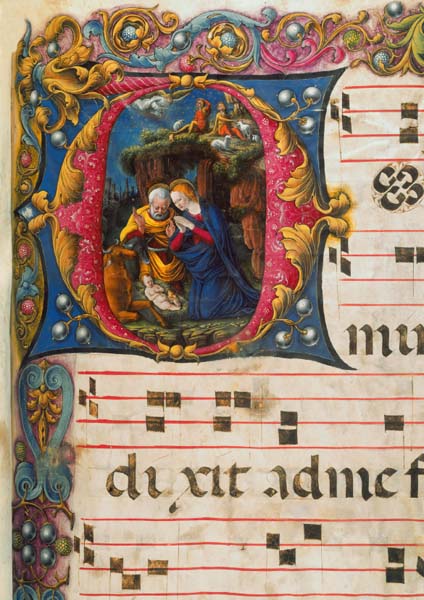 D mi
dixit ad me f